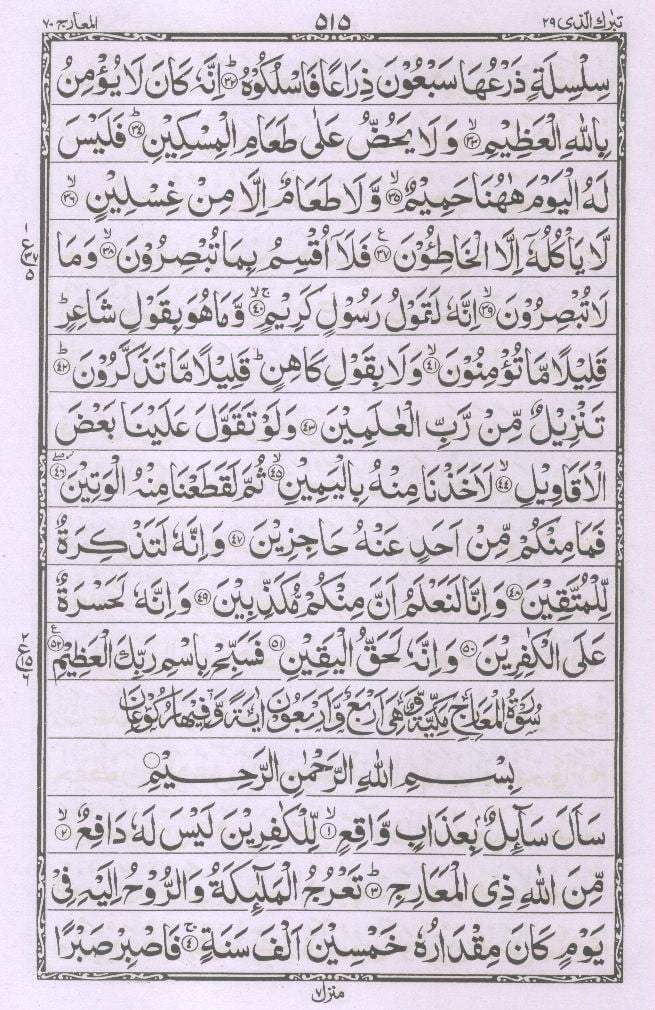 تبٰرك الّذی ۲۹
۵۱۵
المعارج ۷۰
سِلْسِلَةٍ ذَرْعُهَا سَبْعُوْنَ ذِرَاعًا فَاسْلُكُوْهُ ؕ﴿۳۲﴾ اِنَّهٗ كَانَ لَا يُؤْمِنُ
بِاللّٰهِ الْعَظِيْمِ ۙ﴿۳۳﴾ وَلَا يَحُضُّ عَلٰى طَعَامِ الْمِسْكِيْنِ ؕ﴿۳۴﴾ فَلَيْسَ
لَهُ الْيَوْمَ هٰهُنَا حَمِيْمٌ ۙ﴿۳۵﴾ وَّلَا طَعَامٌ اِلَّا مِنْ غِسْلِيْنٍ ۙ﴿۳۶﴾
لَّا يَاْكُلُهٗۤ اِلَّا الْخَاطِـُٔوْنَ ع﴿۳۷﴾ فَلَاۤ اُقْسِمُ بِمَا تُبْصِرُوْنَ ۙ﴿۳۸﴾ وَمَا
لَا تُبْصِرُوْنَ ۙ﴿۳۹﴾ اِنَّهٗ لَقَوْلُ رَسُوْلٍ كَرِيْمٍ ۚۙ﴿۴۰﴾ وَّمَا هُوَ بِقَوْلِ شَاعِرٍ ؕ
قَلِيْلًا مَّا تُؤْمِنُوْنَ ۙ﴿۴۱﴾ وَلَا بِقَوْلِ كَاهِنٍ ؕ قَلِيْلًا مَّا تَذَكَّرُوْنَ ؕ﴿۴۲﴾
تَنْزِيْلٌ مِّنْ رَّبِّ الْعٰلَمِيْنَ ﴿۴۳﴾ وَلَوْ تَقَوَّلَ عَلَيْنَا بَعْضَ
الْاَقَاوِيْلِ ۙ﴿۴۴﴾ لَاَخَذْنَا مِنْهُ بِالْيَمِيْنِ ۙ﴿۴۵﴾ ثُمَّ لَقَطَعْنَا مِنْهُ الْوَتِيْنَ ۖ﴿۴۶﴾
فَمَا مِنْكُمْ مِّنْ اَحَدٍ عَنْهُ حَاجِزِيْنَ ﴿۴۷﴾ وَاِنَّهٗ لَتَذْكِرَةٌ
لِّلْمُتَّقِيْنَ ﴿۴۸﴾ وَاِنَّا لَنَعْلَمُ اَنَّ مِنْكُمْ مُّكَذِّبِيْنَ ﴿۴۹﴾ وَاِنَّهٗ لَحَسْرَةٌ
عَلَى الْكٰفِرِيْنَ ﴿۵۰﴾ وَاِنَّهٗ لَحَقُّ الْيَقِيْنِ ﴿۵۱﴾ فَسَبِّحْ بِاسْمِ رَبِّكَ الْعَظِيْمِ ع﴿۵۲﴾
سُوْرَةُ الْمَعَارِجِ مَكِّيَّةٌ وَّهِىَ اَرْبَعٌ وَّاَرْبَعُوْنَ اٰيَةً وَّفِيْهَا رُكُوْعَانِ
بِسْمِ اللّٰهِ الرَّحْمٰنِ الرَّحِيْمِ
سَاَلَ سَآئِلٌۢ بِعَذَابٍ وَّاقِعٍ ۙ﴿۱﴾ لِّلْكٰفِرِيْنَ لَيْسَ لَهٗ دَافِعٌ ۙ﴿۲﴾
مِّنَ اللّٰهِ ذِى الْمَعَارِجِ ؕ﴿۳﴾ تَعْرُجُ الْمَلٰٓئِكَةُ وَالرُّوْحُ اِلَيْهِ فِىْ
يَوْمٍ كَانَ مِقْدَارُهٗ خَمْسِيْنَ اَلْفَ سَنَةٍ ۚ﴿۴﴾ فَاصْبِرْ صَبْرًا
منزل ۷
۱
ع ۳۷
۵
۲
ع ۱۵
۲